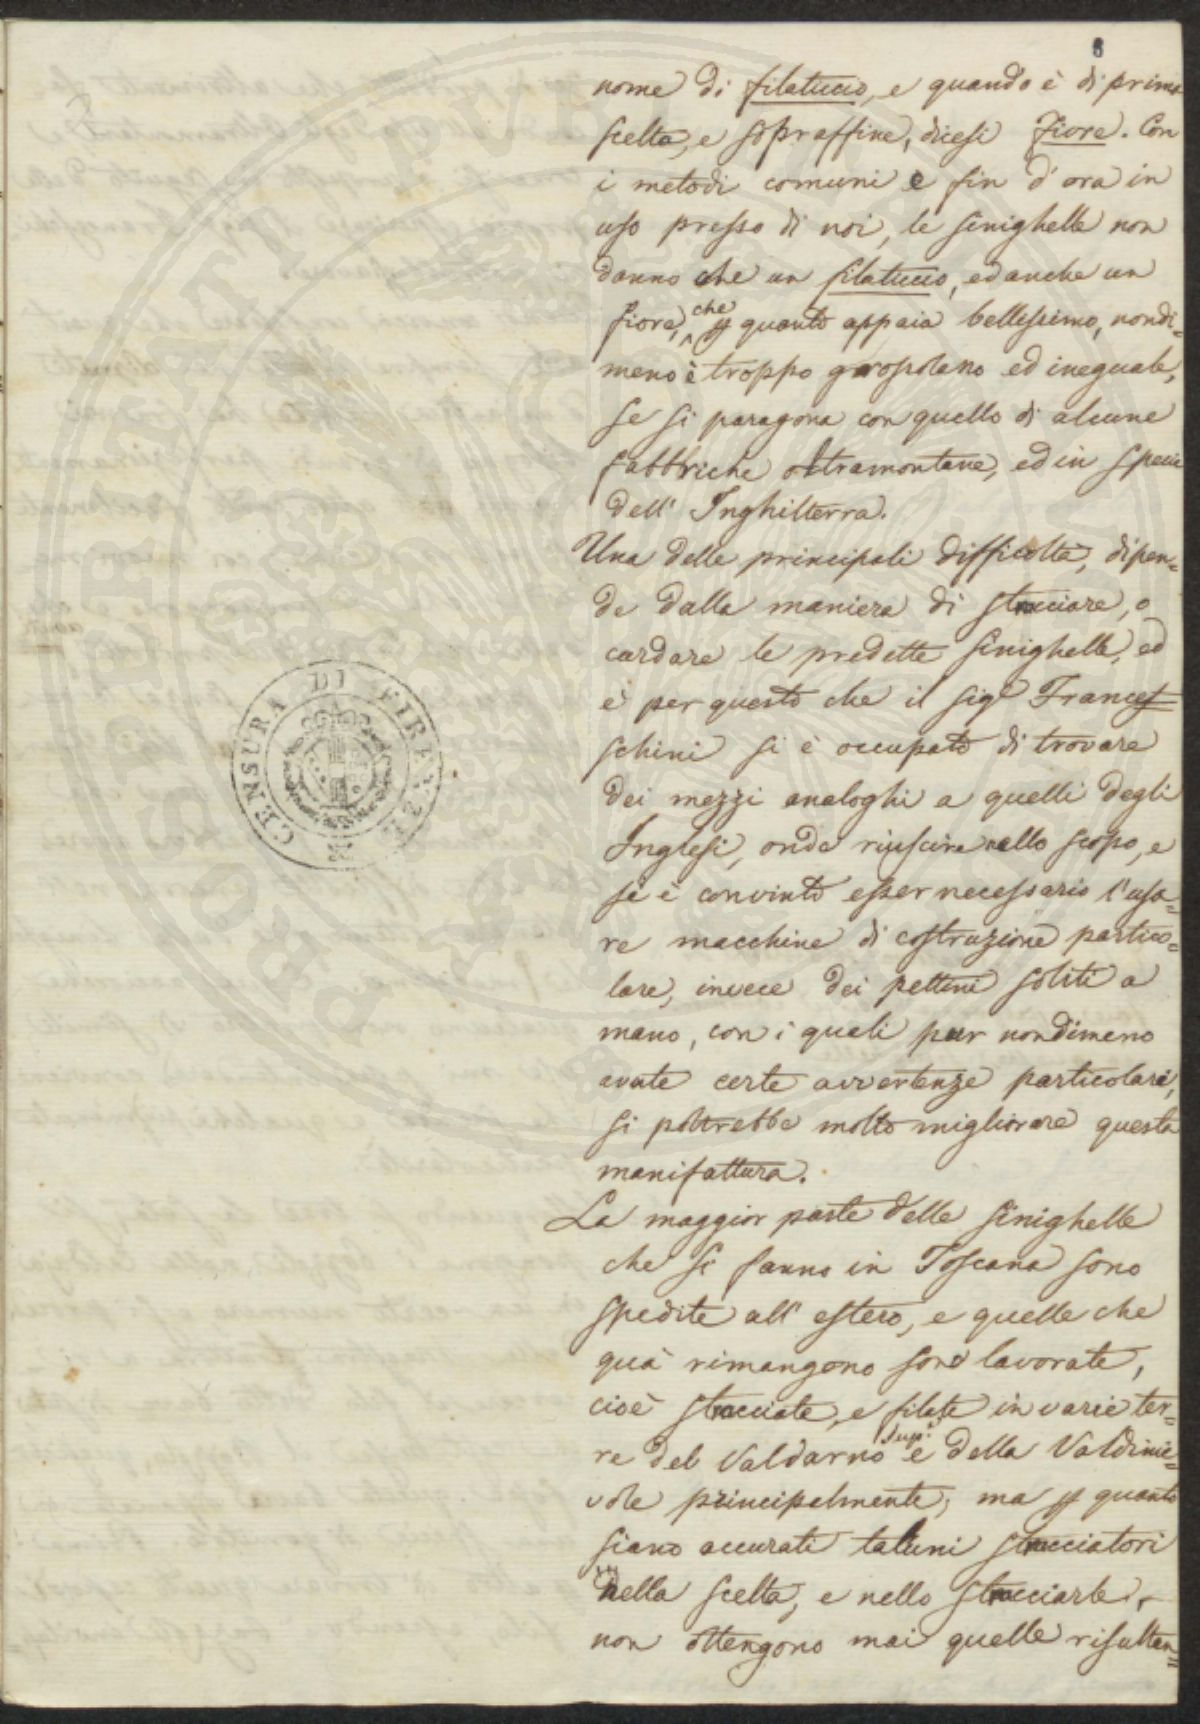 8
nome di filaticcio, e quando è di prima
scelta, e sopraffine, dicesi fiore. Con
i metodi comuni e fin d'ora in
uso presso di noi, le sinighelle non
danno che un filaticcio, ed anche un
fiore, che p quanto appaia bellissimo, nondi=
meno è troppo grossolano ed ineguale,
se si paragona con quello di alcune
fabbriche oltramontane, ed in specie
dell' Inghilterra.
Una delle principali difficoltà, dipen=
de dalla maniera di stracciare, o
cardare le predette sinighelle, ed
è per questo che il sigr Frances=
schini si è occupato di trovare
dei mezzi analoghi a quelli degli
Inglesi, onde riuscire nello scopo, e
si è convinto esser necessario l'usa=
re macchine di costruzione partico=
lare, invece dei pettini soliti a
mano, con i quali pur nondimeno
avute certe avvertenze particolari,
si potrebbe molto migliorare questa
manifattura.
La maggior parte delle sinighelle
che si fanno in Toscana sono
spedite all' estero, e quelle che
quà rimangono sono lavorate,
cioè stracciate, e filate in varie ter=
re del Valdarno supe. e della Valdinie=
vole principalmente; ma p quanto
siano accurati taluni stracciatori
nella scelta, e nello stracciarle,
non ottengono mai quelle risultan=
CENSURA DI FIRENZE
PROPRIETATI PVBLICAE